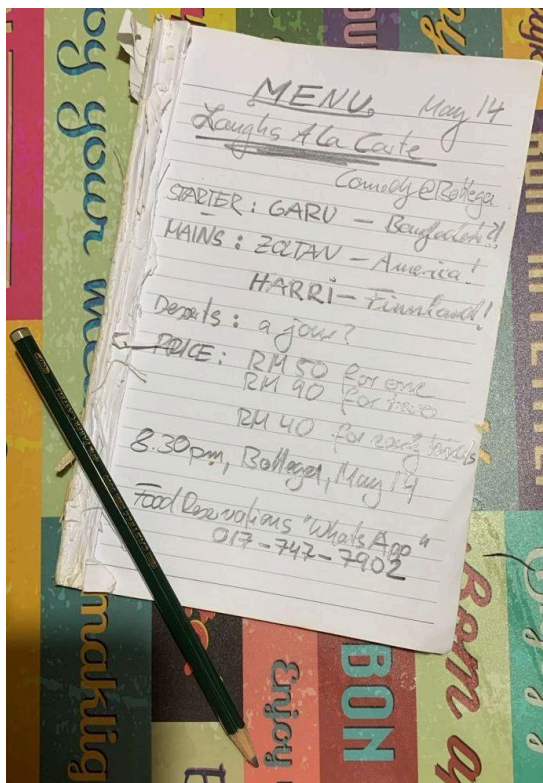 MENU May 14
Laughs A la Carte
Comedy@Bottega
STARTER: GARU — Bangladesh?!
MAINS: ZOLTAN — America!
HARRI — Finnland!
Deserts: a jour?
PRICE: RM 50 for one
RM 90 for two
RM 40 for
8.30pm, Bottega, May 14
Food Reservations "WhatsApp"
017-747-7902
oy your me
making
Enjoy
BON
Born a